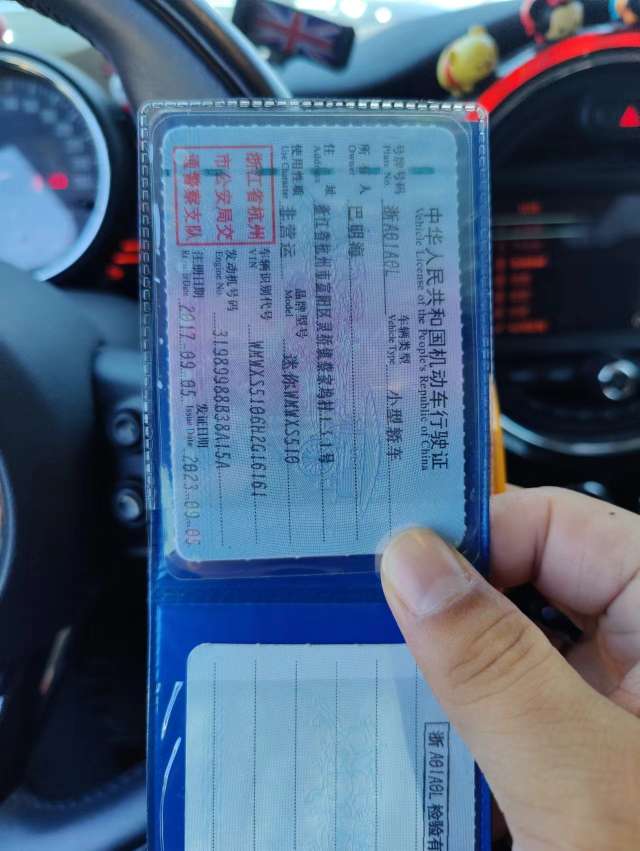 中华人民共和国机动车行驶证
Vehicle License of the People's Republic of China
号牌号码 浙A01A0L 车辆类型 小型轿车
Plate No. Vehicle Type
所有人 巴明海
Owner
住址 浙江省杭州市富阳区灵桥镇蔡家坞村151号
Address
使用性质 非营运 品牌型号 迷你WMWXS510
Use Character Model
浙江省杭州
市公安局交
通警察支队
车辆识别代号 WMWXS5106H2G16161
VIN
发动机号码 31989988B38A15A
Engine No.
注册日期 2017.09.05 发证日期 2023.09.05
Register Date Issue Date
浙A01A0L 检验有